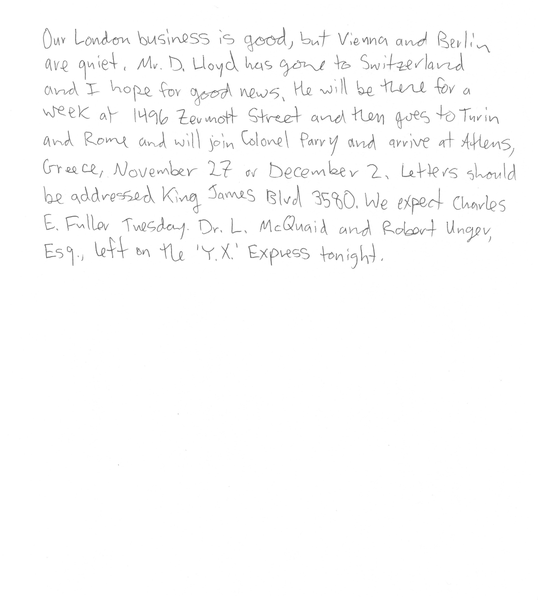 Our London business is good, but Vienna and Berlin
are quiet. Mr. D. Lloyd has gone to Switzerland
and I hope for good news. He will be there for a
week at 1496 Zermott Street and then goes to Turin
and Rome and will join Colonel Parry and arrive at Athens,
Greece, November 27 or December 2. Letters should
be addressed King James Blvd 3580. We expect Charles
E. Fuller Tuesday. Dr. L. McQuaid and Robert Unger,
Esq., left on the 'Y.X.' Express tonight.